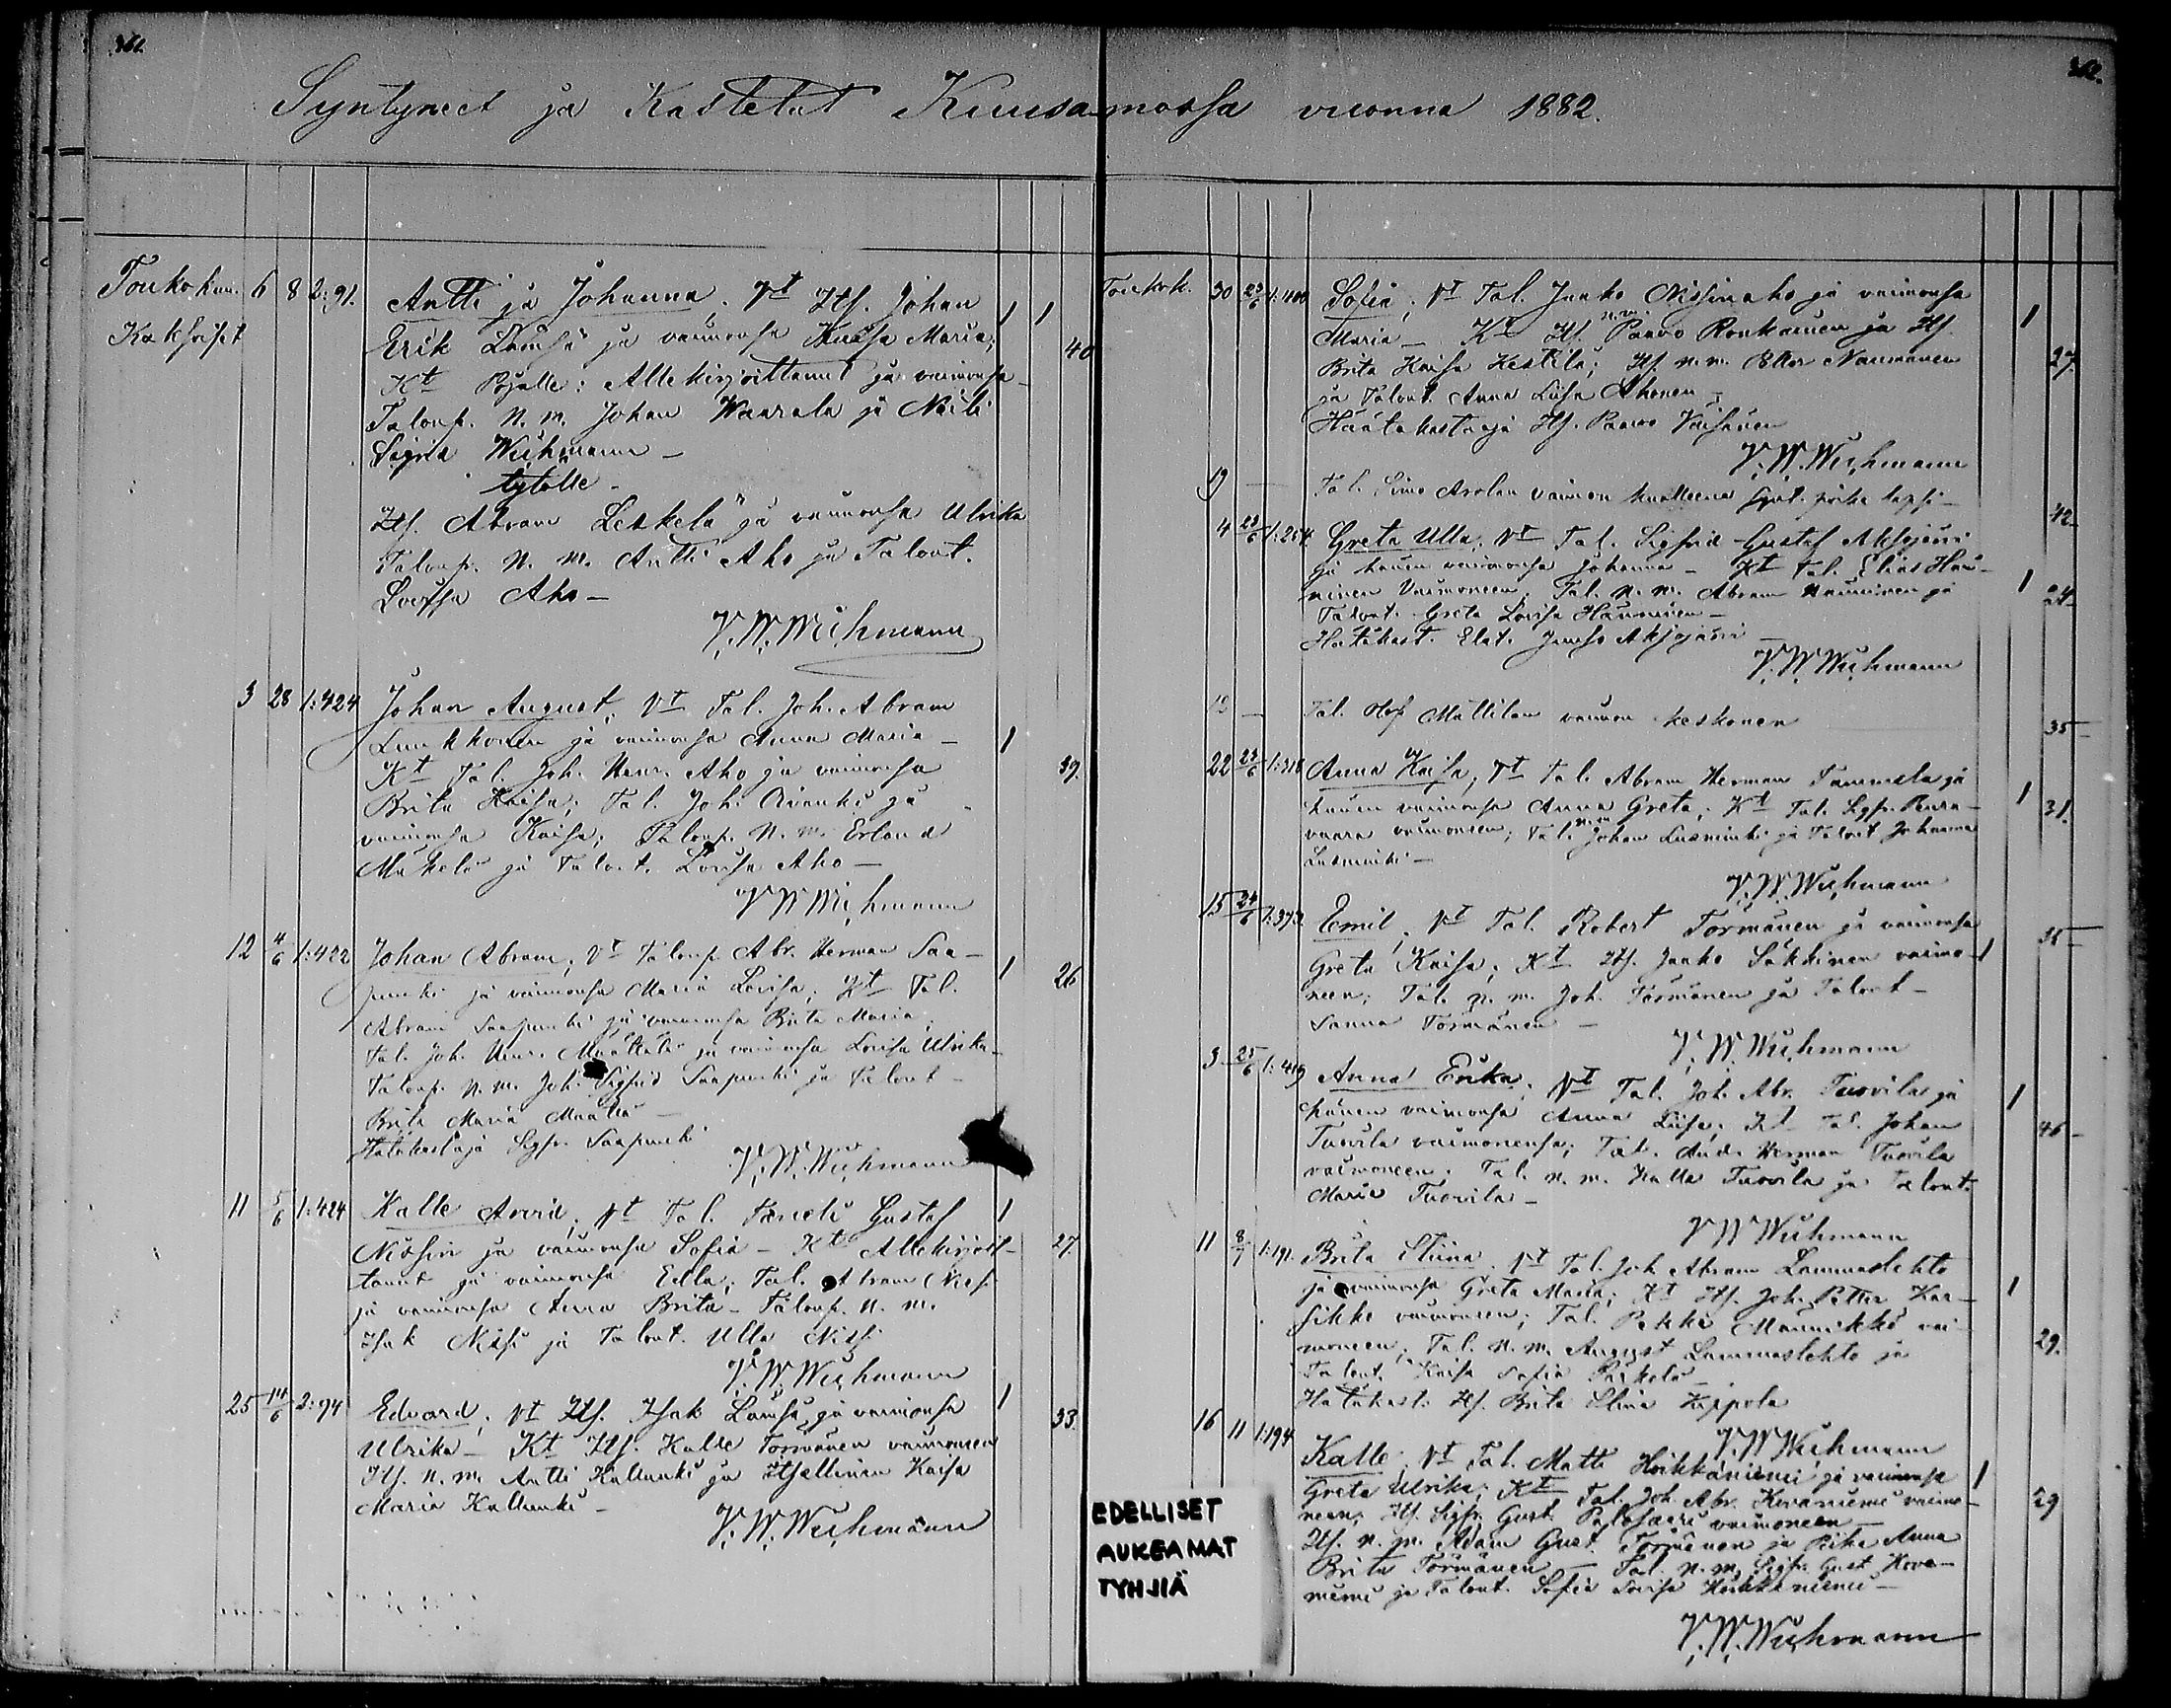 361.
362.
Syntyneet ja Kastetut Kuusamossa vuonna 1882.
Toukokuu. 6 8 2:91. Antti ja Johanna; Vt Itf. Johan 1 1
Kaksoiset Erik Lämsä ja vaimonsa Kaisa Maria; 40
Kt Pojalle: Allekirjoittanut ja vaimonsa
Talonp. N. m. Johan Waarala ja Naili
Sigrid Wichmann –
tytölle –
Itf. Abram Leskelä ja vaimonsa Ulrika
Talonp. N. m. Antti Aho ja Talont.
Lovisa Aho –
V. W. Wichmann
3 28 1:424 Johan August; Vt Tal. Joh. Abram
Lunkkonen ja vaimonsa Anna Maria – 1
Kt Tal. Joh. Henr. Aho ja vaimonsa 39.
Brita Kaisa; Tal. Joh. ja
vaimonsa Kaisa; Talonp. N. m. Erland
Mäkelä ja Talont. Lovisa Aho –
V W Wichmann
12 4/6 1:422 Johan Abram; Vt Talonp Abr. Herman Saa- 1
punki ja vaimonsa Maria Lovisa; Kt Tal. 26
Abram Saapunki ja vaimonsa Brita Maria;
Tal. Joh. Henr. Määttälä ja vaimonsa Lovisa Ulrika –
Talonp. N. m. Joh. Sigfrid Saapunki ja Talont –
Brita Maria Määttä –
Hätäkastaja Sigfr. Saapunki
V. W. Wichmann
11 5/6 1:424 Kalle Arvid; Vt Tal. Taneli Gustaf 1
Nissin ja vaimonsa Sofia – Kt Allekirjoit- 27.
tanut ja vaimonsa Edla; Tal. Abram Nissi
ja vaimonsa Anna Brita – Talonp. N. m.
Isak Nissi ja Talont. Ulla Nissi
V. W. Wichmann
25 14/6 2:94 Edvard; Vt Itf. Isak Lämsä ja vaimonsa 1
Ulrika – Kt Itf. Kalle Törmänen vaimoneen 33.
Itf. N. m. Antti Kallunki ja Itsellinen Kaisa
Maria Kallunki –
V. W. Wichmann
Toukok. 30 23/6 1:400 Sofia; Vt Tal. Jaako Nissinaho ja vaimonsa
Maria – Kt Itf. n.m. Paavo Ronkainen ja Itf. 1
Brita Kaisa Kestilä; Itf. N. m. Petter Naumanen 27.
ja Talont. Anna Liisa Ahonen –
Hätäkastaja Itf. Paavo Väisänen
V. W. Wichmann
19 – Tal. Simo Arolan vaimon kuolleena synt. poika lapsi – 42
4 23/6 1:254 Greta Ulla; Vt Tal. Sigfrid Gustaf Aksjärvi
ja hänen vaimonsa Johanna – Kt Tal. Elias Hän-
ninen Vaimoneen. Tal. N. m. Abram Hänninen ja 1 24
Talont. Greta Lovisa Hänninen –
Hätäkast. Elat. Aksjärvi –
V. W. Wichmann
19 – Tal. Olof Mällilan vaimon keskonen 35
22 23/6 1:318 Anna Kaisa; Vt Tal. Abram Herman Tammela ja
hänen vaimonsa Anna Greta; Kt Tal. Sigfr. 1 31.
vaara vaimoneen; Tal. n.m Johan Lusminki ja Talont Johanna
Lusminki –
V. W. Wichmann
15 24/6 1:372 Emil; Vt Tal. Robert Törmänen ja vaimonsa 35
Greta Kaisa; Kt Itf. Jaako Säkkinen vaimo- 1
neen; Tal. N. m. Joh. Törmänen ja Talont –
Sanna Törmänen –
V. W. Wichmann
3 25/6 1:419 Anna Erika; Vt Tal. Joh. Abr. Tuovila ja 1
hänen vaimonsa Anna Liisa; Kt Tal. Johan 46
Tuovila vaimonensa; Tal. And. Herman Tuovila
vaimoneen. Tal. N. m. Kalle Tuovila ja Talont.
Maria Tuovila –
V W Wichmann
11 8/7 1:191. Brita Stiina; Vt Tal. Joh Abram Lammaslehto
ja vaimonsa Greta Maria; Kt Itf. Joh. Petter Kar- 1
sikko vaimoneen; Tal. Pekka Mannikkö vai-
moneen; Tal. N. m. August Lammaslehto ja 29.
Talont. Kaisa Sofia Pirkelä –
Hätäkast. Itf. Brita Stina Keppola
V. W. Wichmann
16 11 1:194 Kalle; Vt Tal. Matti Heikkäniemi ja vaimonsa 1
Greta Ulrika; Kt Tal. Joh. Abr. Kevaniemi vaimo- 29
neen; Itf. Sigfr. Gust. vaimoneen –
Itf. n. m. Adam Gust. Törmänen ja Piika Anna
Brita Törmänen – Tal. N. m. Sigfr. Gust Keva-
niemi ja Talont. Sofia Lovisa Heikkaniemi –
V. W. Wichmann
EDELLISET
AUKEAMAT
TYHJIÄ